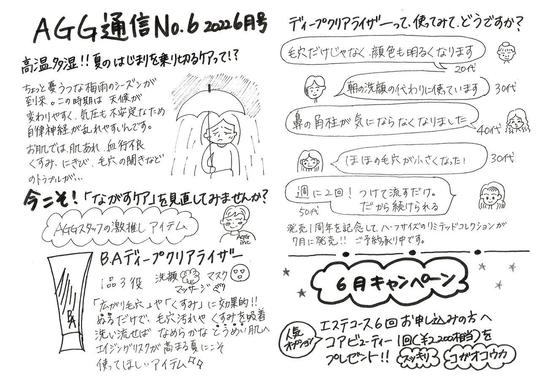 AGG通信No.6 2022 6月号
高温多湿!!夏のはじまりを乗り切るケアって!?
ちょっと憂うつな梅雨のシーズンが
到来。この時期は天候が
変わりやすく、気圧も不安定なため
自律神経が乱れやすいんです。
お肌では、肌あれ、血行不良
くすみ、にきび、毛穴の開きなど
のトラブルが…
今こそ!「ながすケア」を見直してみませんか?
AGGスタッフの激推しアイテム
B.A ディープクリアライザー
1品3役 洗顔 マスク
マッサージ
「広がり毛穴」や「くすみ」に効果的!!
塗るだけで、毛穴汚れやくすみを吸着
洗い流せばなめらかなとうめい肌へ
エイジングリスクが高まる夏にこそ
使ってほしいアイテム
ディープクリアライザーって、使ってみて、どうですか?
毛穴だけじゃなく、顔色も明るくなります
20代
朝の洗顔の代わりに使っています
30代
鼻の角栓が気にならなくなりました
40代
ほほの毛穴が小さくなった!
30代
週に2回!つけて流すだけ。
だから続けられる
50代
発売1周年を記念してハーフサイズのリミテッドコレクションが
7月に発売!!ご予約承り中です。
6月キャンペーン
人気オプション
エステコース6回お申し込みの方へ
コアビューティー1回(¥2,200相当)を
プレゼント!! スッキリ コガオコウカ